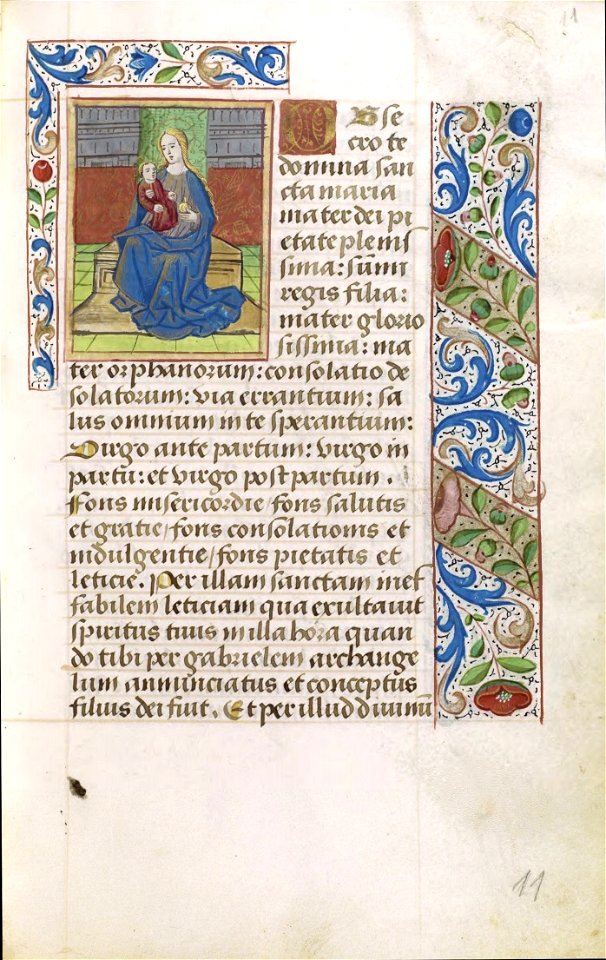 11
OBse
cro te
domina san
cta maria
mater dei pi
etate plenis
sima: sum̄i
regis filia:
mater glorio
sissima: ma
ter orphanorum: consolatio de
solatorum: via errantium: sa
lus omnium in te sperantium:
Virgo ante partum: virgo in
partu: et virgo post partum.
Fons misericordie/fons salutis
et gratie/fons consolationis et
indulgentie/fons pietatis et
leticie. Per illam sanctam inef
fabilem leticiam qua exultavit
spiritus tuus in illa hora quan
do tibi per gabrielem archange
lum annunciatus et conceptus
filius dei fuit. Et per illud divinū
11